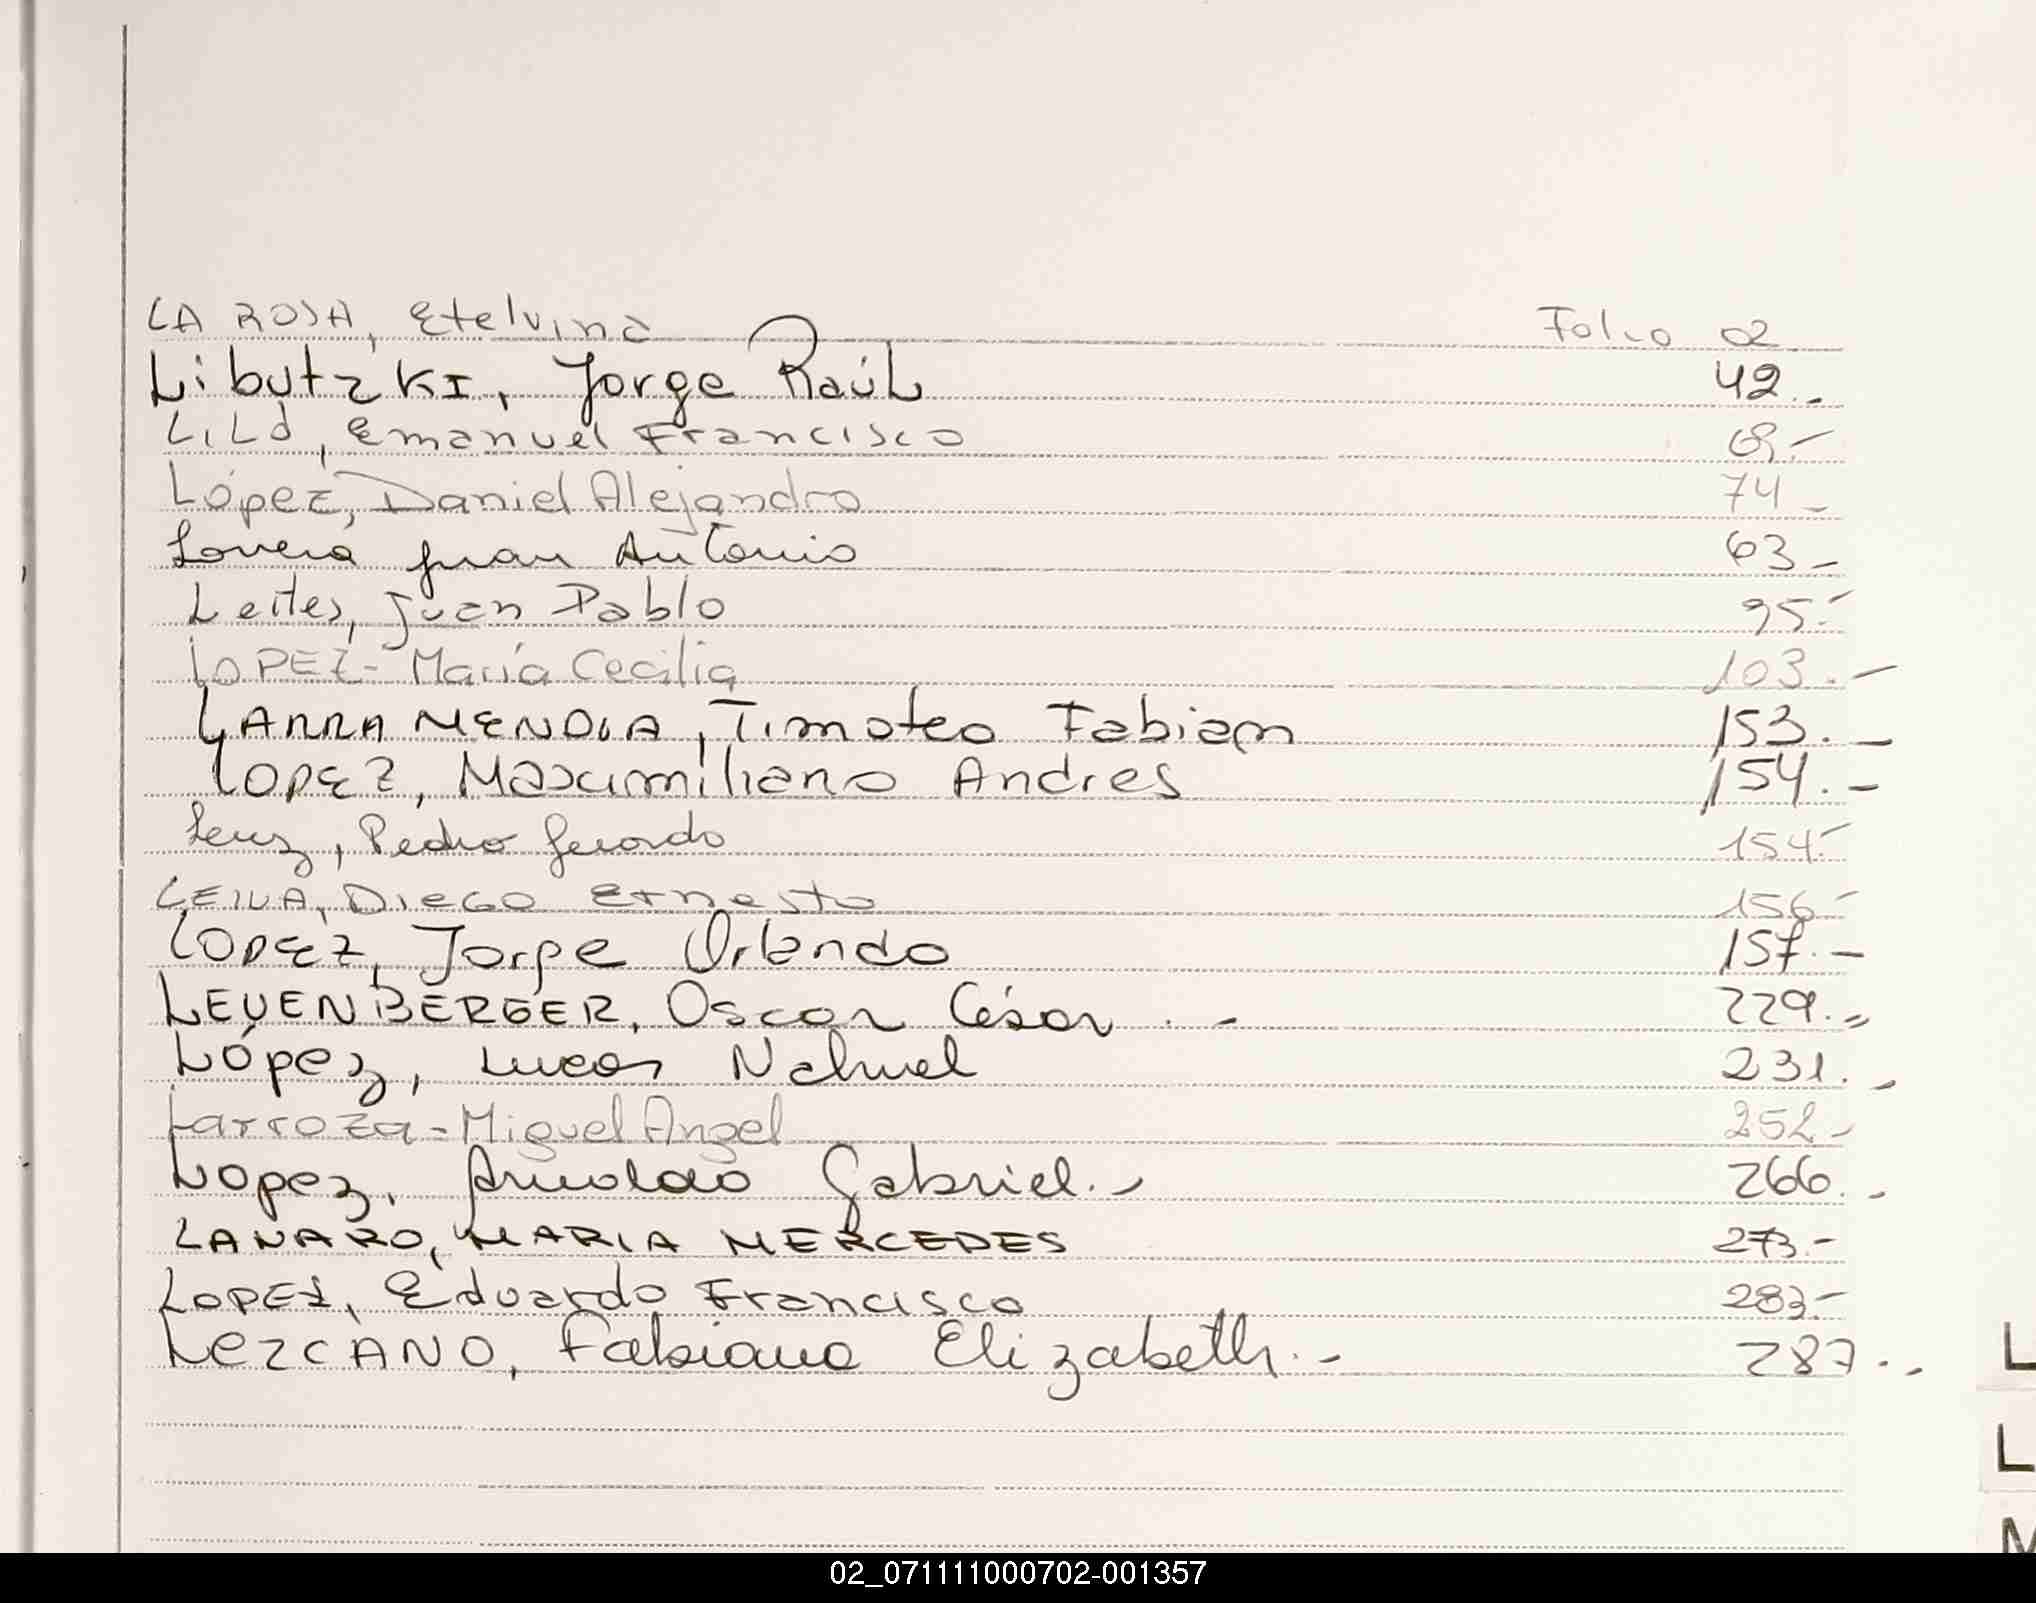 LA ROSA, Etelvina Folio 02
Libutzki, Jorge Raúl 42.-
Lild, Emanuel Francisco 69.-
López, Daniel Alejandro 74-
Lovera Juan Antonio 63-
Leites, Juan Pablo 95.-
LOPEZ- María Cecilia 103.-
LARRAMENDIA, Timoteo Fabian 153.-
LOPEZ, Maximiliano Andres 154.-
Lenz, Pedro Gerardo 154.-
LEIVA, DIEGO Ernesto 156-
LOPEZ, Jorge Orlando 157.-
LEUENBERGER, Oscar César.- 229.-
López, Lucas Nahuel 231.-
Larroza-Miguel Angel 252-
Lopez, Arnoldo Gabriel.- 266.-
LANARO, MARIA MERCEDES 273.-
LOPEZ, Eduardo Francisco 283.-
LEZCANO, Fabiana Elizabeth.- 287.-
L
L
M
02_071111000702-001357